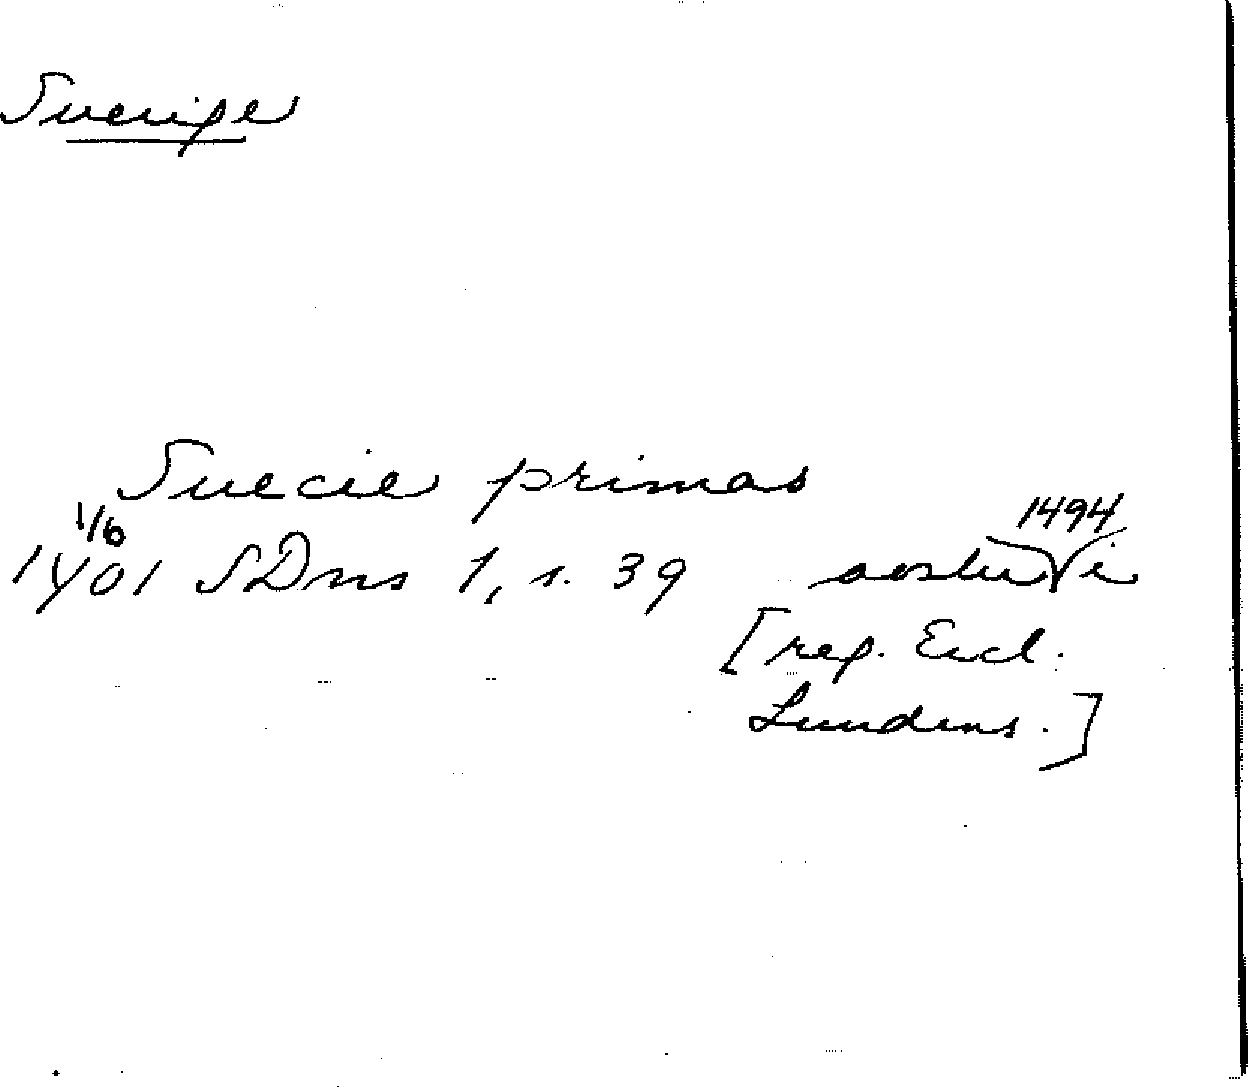 Sverige
Suecie primas
1/6
1401 SDns 1, s. 39 avskr 1494 i
[reg. Eccl.
Lundens.]